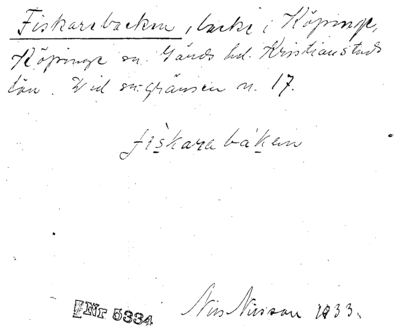 Fiskarebacken, backe i Köpinge,
Köpinge sn. Gärds hd. Kristianstads
län. Vid sn-gränsen n. 17.
fiskarabáken
Nr 5334
Nils Nilsson 1933.